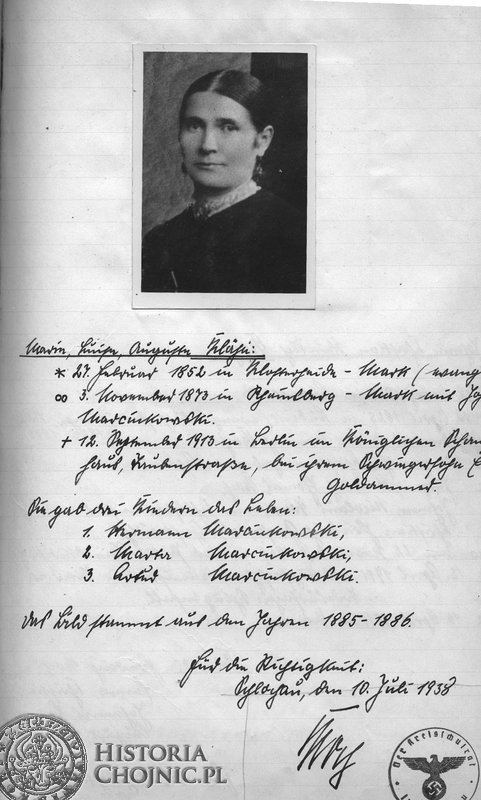 Marie, Luise, Auguste Kläsi:
* 27. Februar 1852 in Klosterheide - Mark (evang
∞ 3. November 1873 in Rheinsberg - Mark mit Jo
Marcinkowski.
+ 12. September 1913 in Berlin im Königlichen Schau
haus, Taubenstraße, bei ihrem Schwiegersohn
Goldammer.
Sie gab drei Kindern das Leben:
1. Hermann Marcinkowski,
2. Marta Marcinkowski,
3. Artur Marcinkowski.
Das Bild stammt aus den Jahren 1885-1886.
Für die Richtigkeit:
Schlochau, den 10. Juli 1938
Der Kreisschulrat
HISTORIA
CHOJNIC.PL